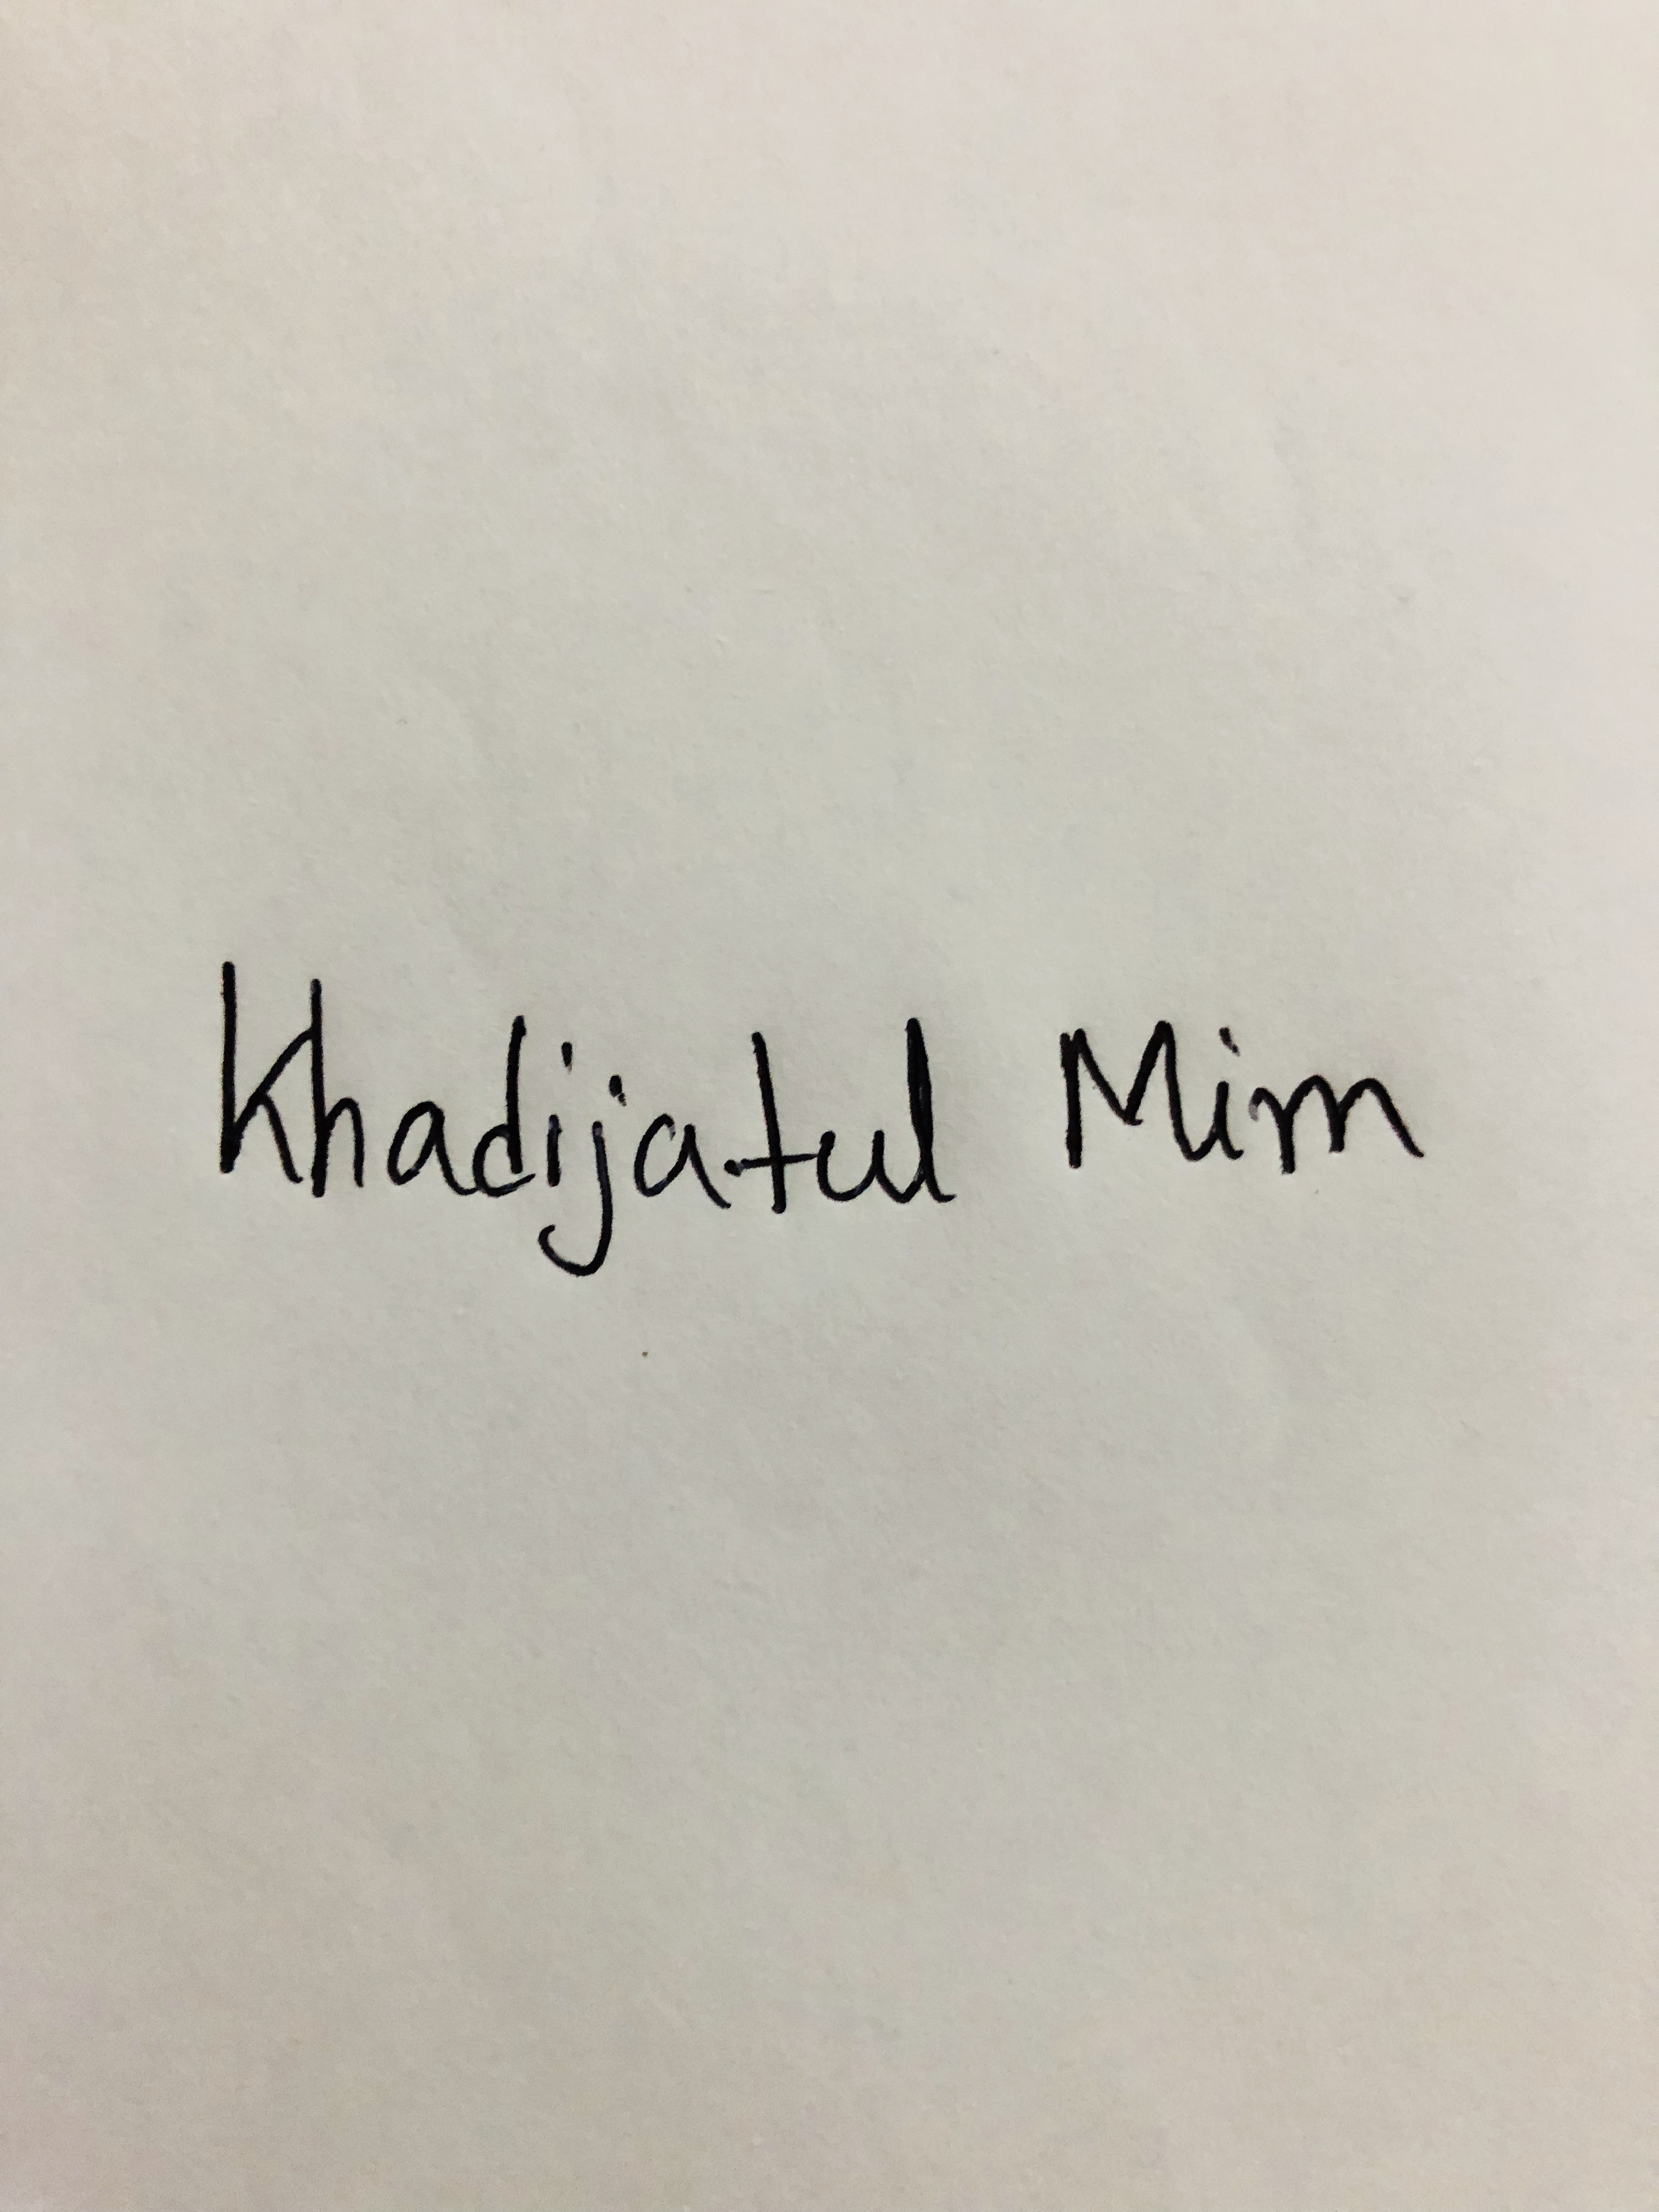 Khadijatul Mim